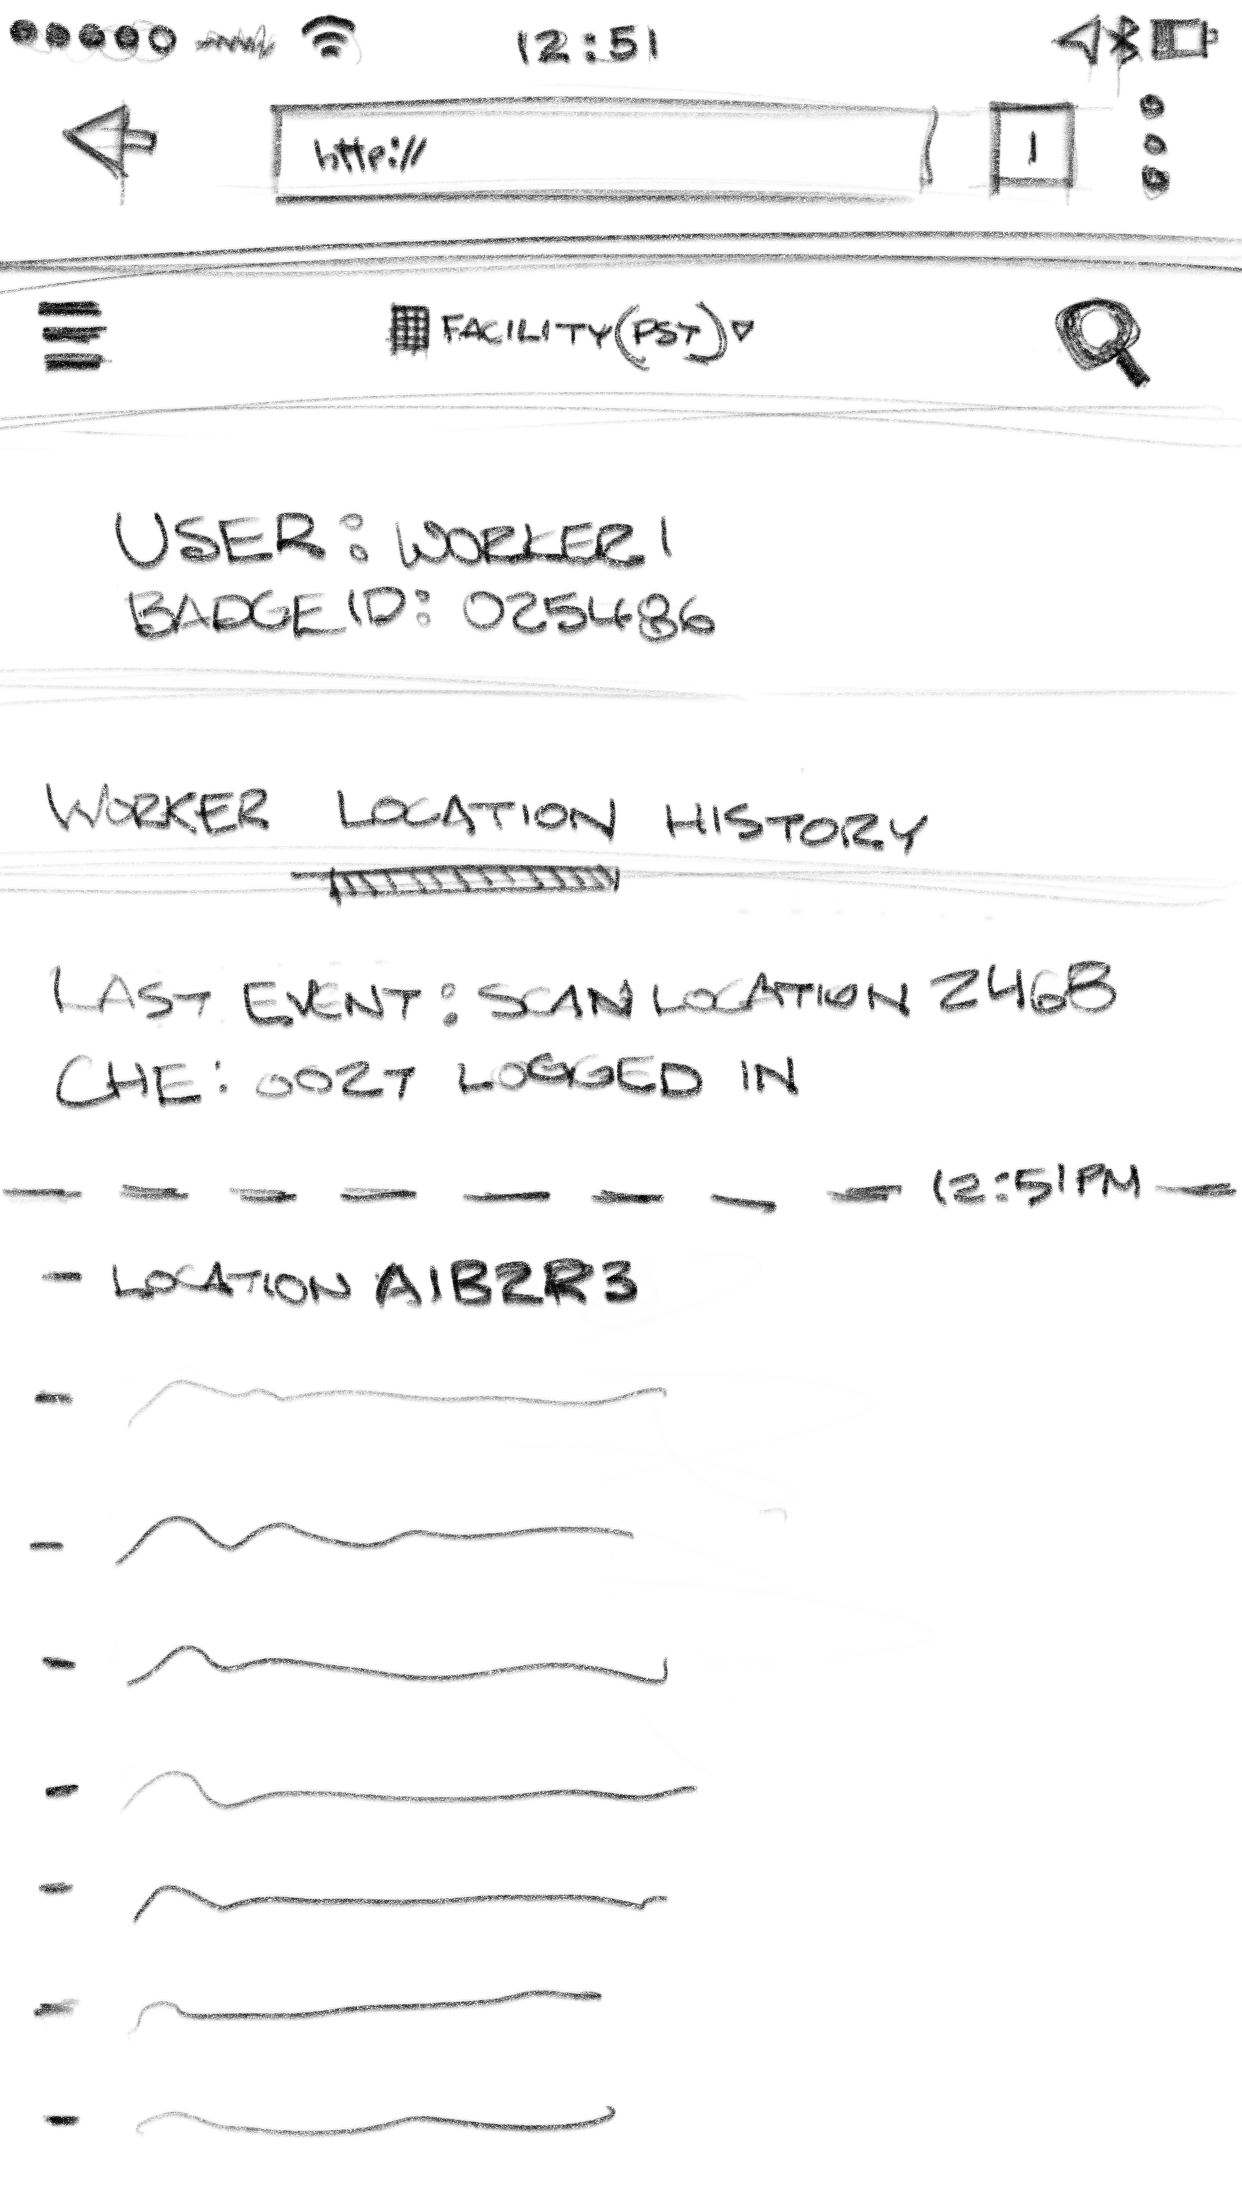 12:51
http://
1
FACILITY (PST)
USER: WORKER 1
BADGE ID: 025486
WORKER LOCATION HISTORY
LAST EVENT: SCAN LOCATION 246B
CHE: 0027 LOGGED IN
12:51PM
- LOCATION A1B2R3